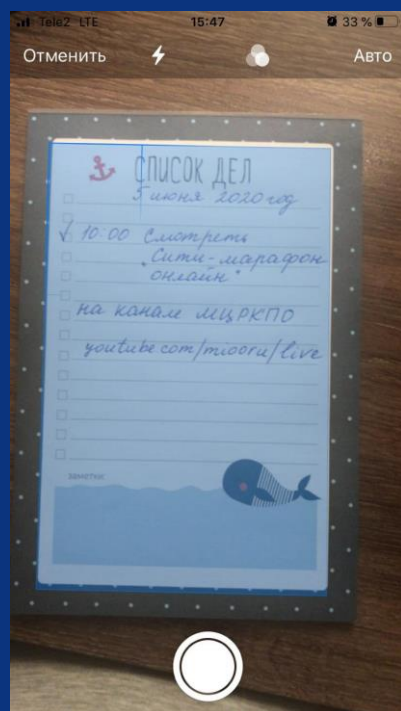 Tele2 LTE 15:47 33 %
Отменить Авто
СПИСОК ДЕЛ
5 июня 2020 год
10:00 Смотреть
"Сити-марафон
онлайн"
на канале МЦРКПО
youtube.com/miooru/live
ЗАМЕТКИ: